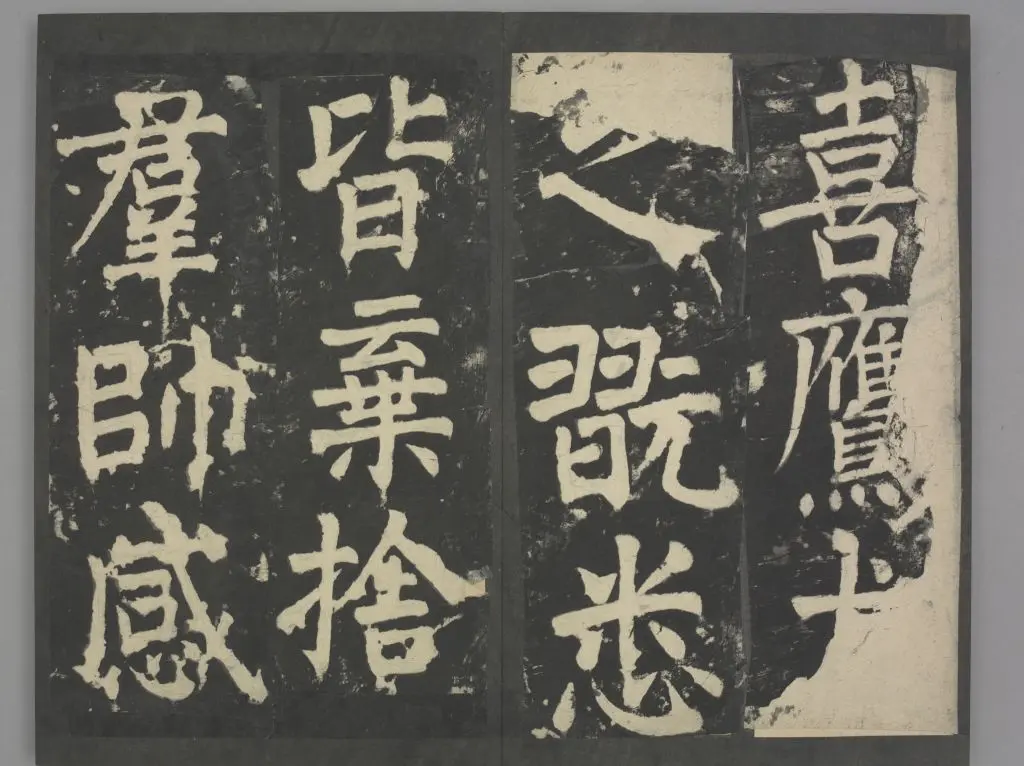 喜鷹犬
之翫悉
皆棄捨
羣帥感